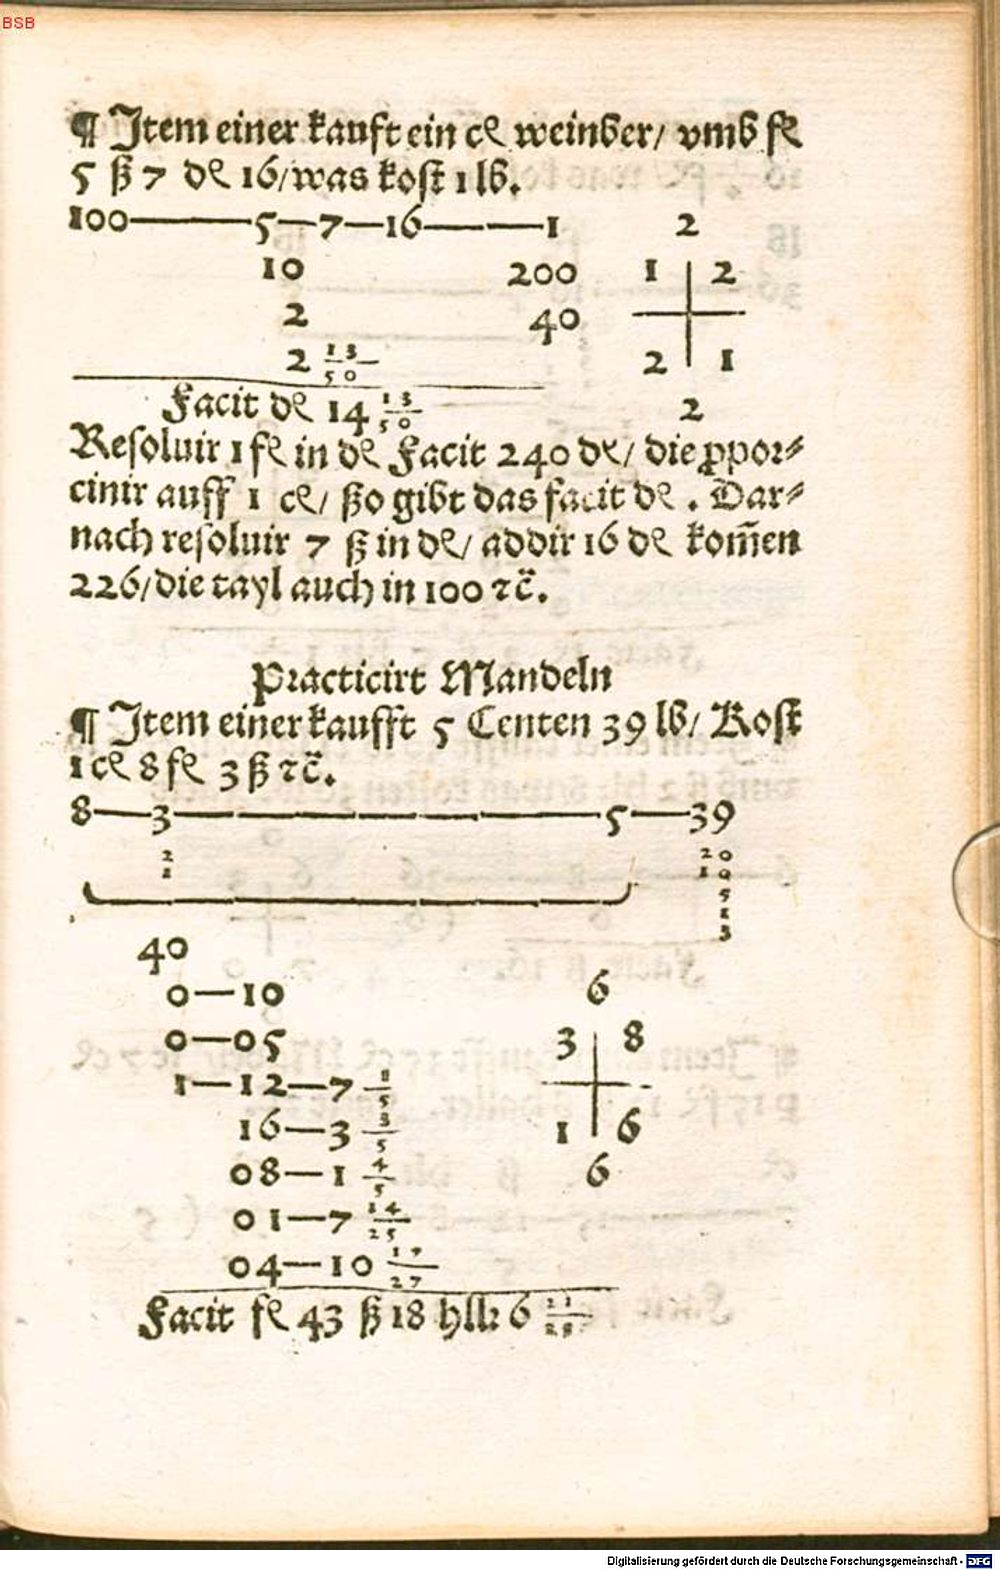 BSB
¶ Jtem einer kauft ein cł weinber/ vmb fł
5 ß 7 dł 16/was kost 1 lb.
100——5—7—16——1 2
10 200 1 2
2 40
2 13/50 2 1
Facit dł 14 13/50 2
Resoluir 1 fł in dł Facit 240 dł/ die ꝓpor⸗
cinir auff 1 cł/ ßo gibt das facit dł . Dar⸗
nach resoluir 7 ß in dł/ addir 16 dł kom̄en
226/die tayl auch in 100 ⁊c̈.
Practicirt Mandeln
¶ Jtem einer kaufft 5 Centen 39 lb/ Kost
1 cł 8 fł 3 ß ⁊c̈.
8—3——————5—39
2 20
1 10
5
1
3
40
0—10 6
0—05 3 8
1—12—7 1/5
16—3 3/5 1 6
08—1 4/5 6
01—7 14/25
04—10
Facit fł 43 ß 18 hll: 6
Digitalisierung gefördert durch die Deutsche Forschungsgemeinschaft - DFG